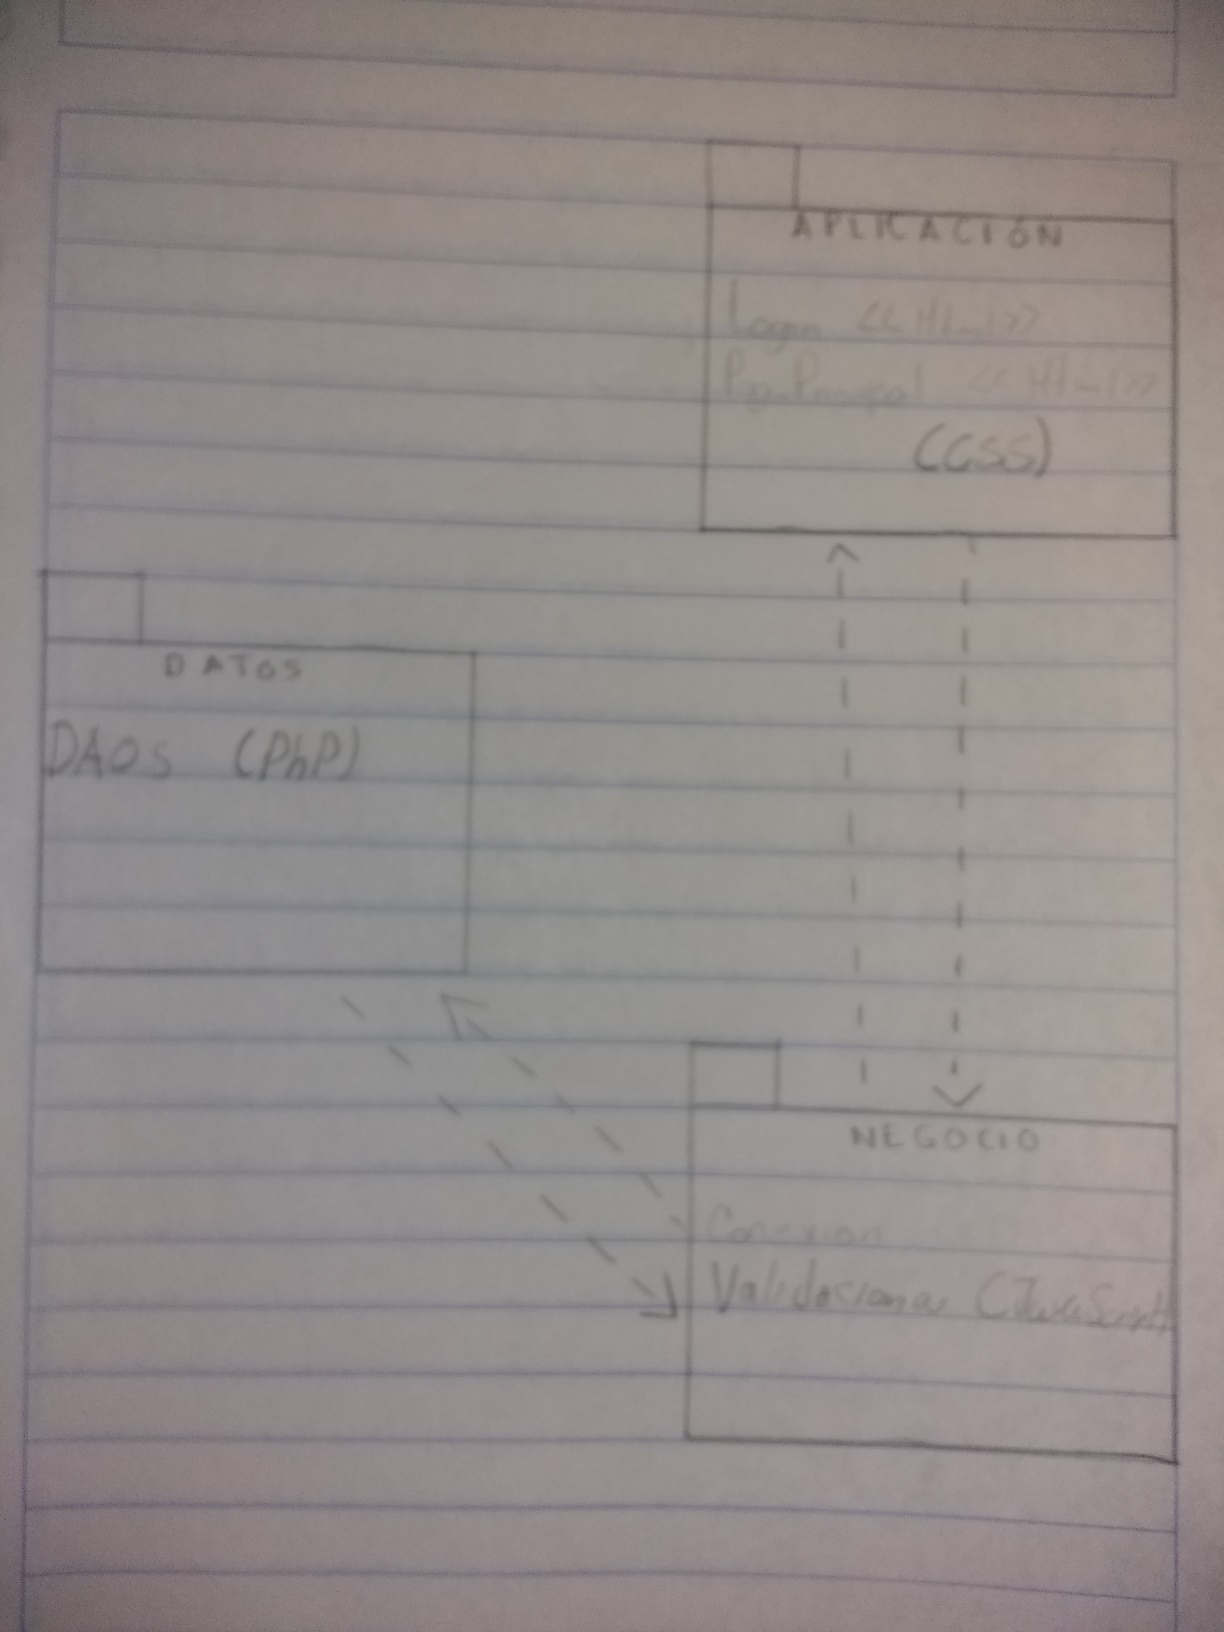 APLICACIÓN
Login <<Html>>
Pag_Principal <<Html>>
(CSS)
DATOS
DAOS (PhP)
NEGOCIO
Conexion
Validaciones (JavaScript